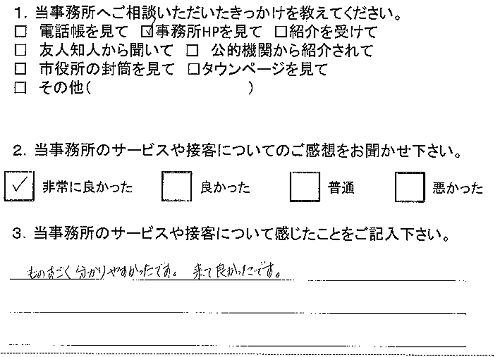 1. 当事務所へご相談いただいたきっかけを教えてください。
□ 電話帳を見て ☑事務所HPを見て □紹介を受けて
□ 友人知人から聞いて □ 公的機関から紹介されて
□ 市役所の封筒を見て □タウンページを見て
□ その他( )
2. 当事務所のサービスや接客についてのご感想をお聞かせ下さい。
☑ 非常に良かった □ 良かった □ 普通 □ 悪かった
3. 当事務所のサービスや接客について感じたことをご記入下さい。
ものすごく分かりやすかったです。来て良かったです。